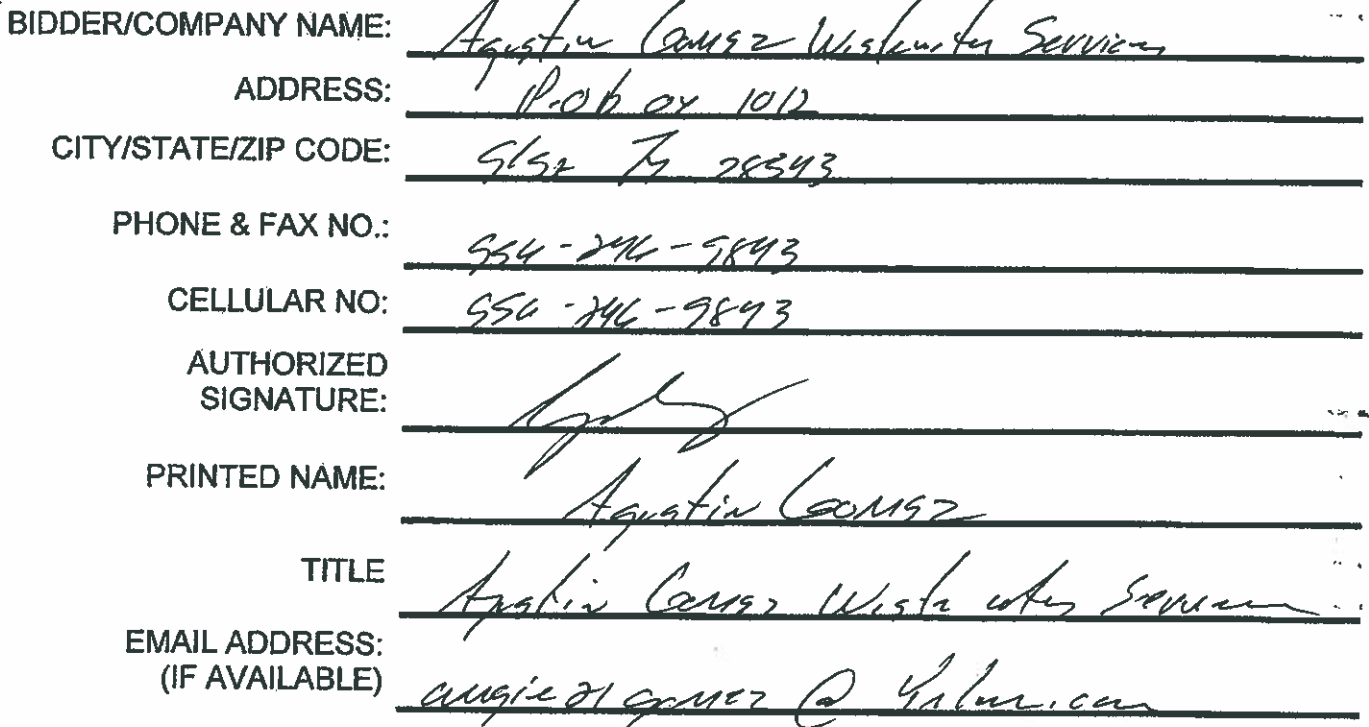 BIDDER/COMPANY NAME: Agustin Gomez Wastewater Services
ADDRESS: P.O box 1012
CITY/STATE/ZIP CODE: Elsa Tx 78543
PHONE & FAX NO.: 956-246-9843
CELLULAR NO: 956-246-9843
AUTHORIZED
SIGNATURE:
PRINTED NAME: Agustin Gomez
TITLE Agustin Gomez Waste water Services
EMAIL ADDRESS:
(IF AVAILABLE) augie21gomez @